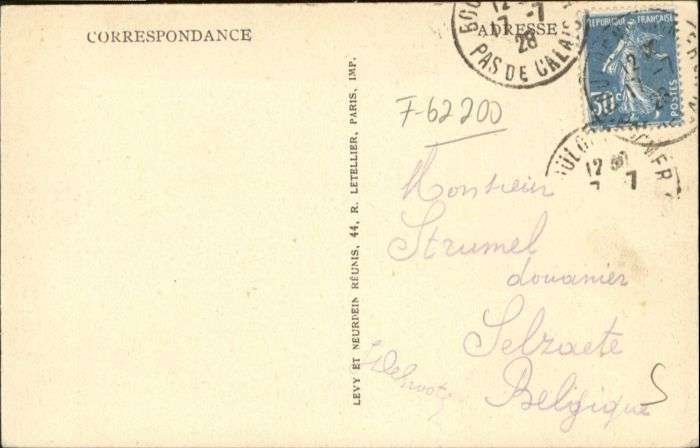 CORRESPONDANCE
ADRESSE
12
17-7
28
PAS DE CALAIS
REPUBLIQUE FRANÇAISE
50c
POSTES
12
7-7
F-62200
LEVY ET NEURDEIN RÉUNIS, 44, R. LETELLIER, PARIS, IMP.
Monsieur
Strumel
douanier
Selzaete
Belgique
S